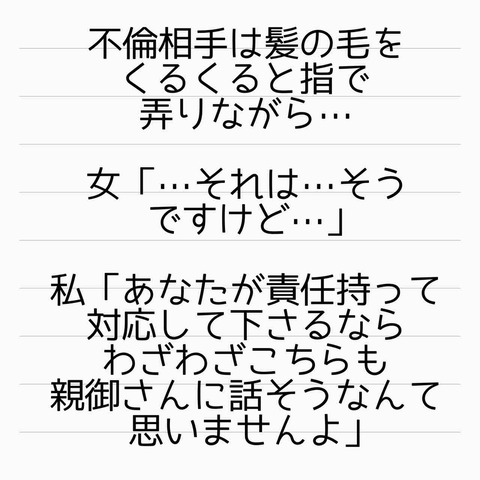 不倫相手は髪の毛を
くるくると指で
弄りながら…
女「…それは…そう
ですけど…」
私「あなたが責任持って
対応して下さるなら
わざわざこちらも
親御さんに話そうなんて
思いませんよ」